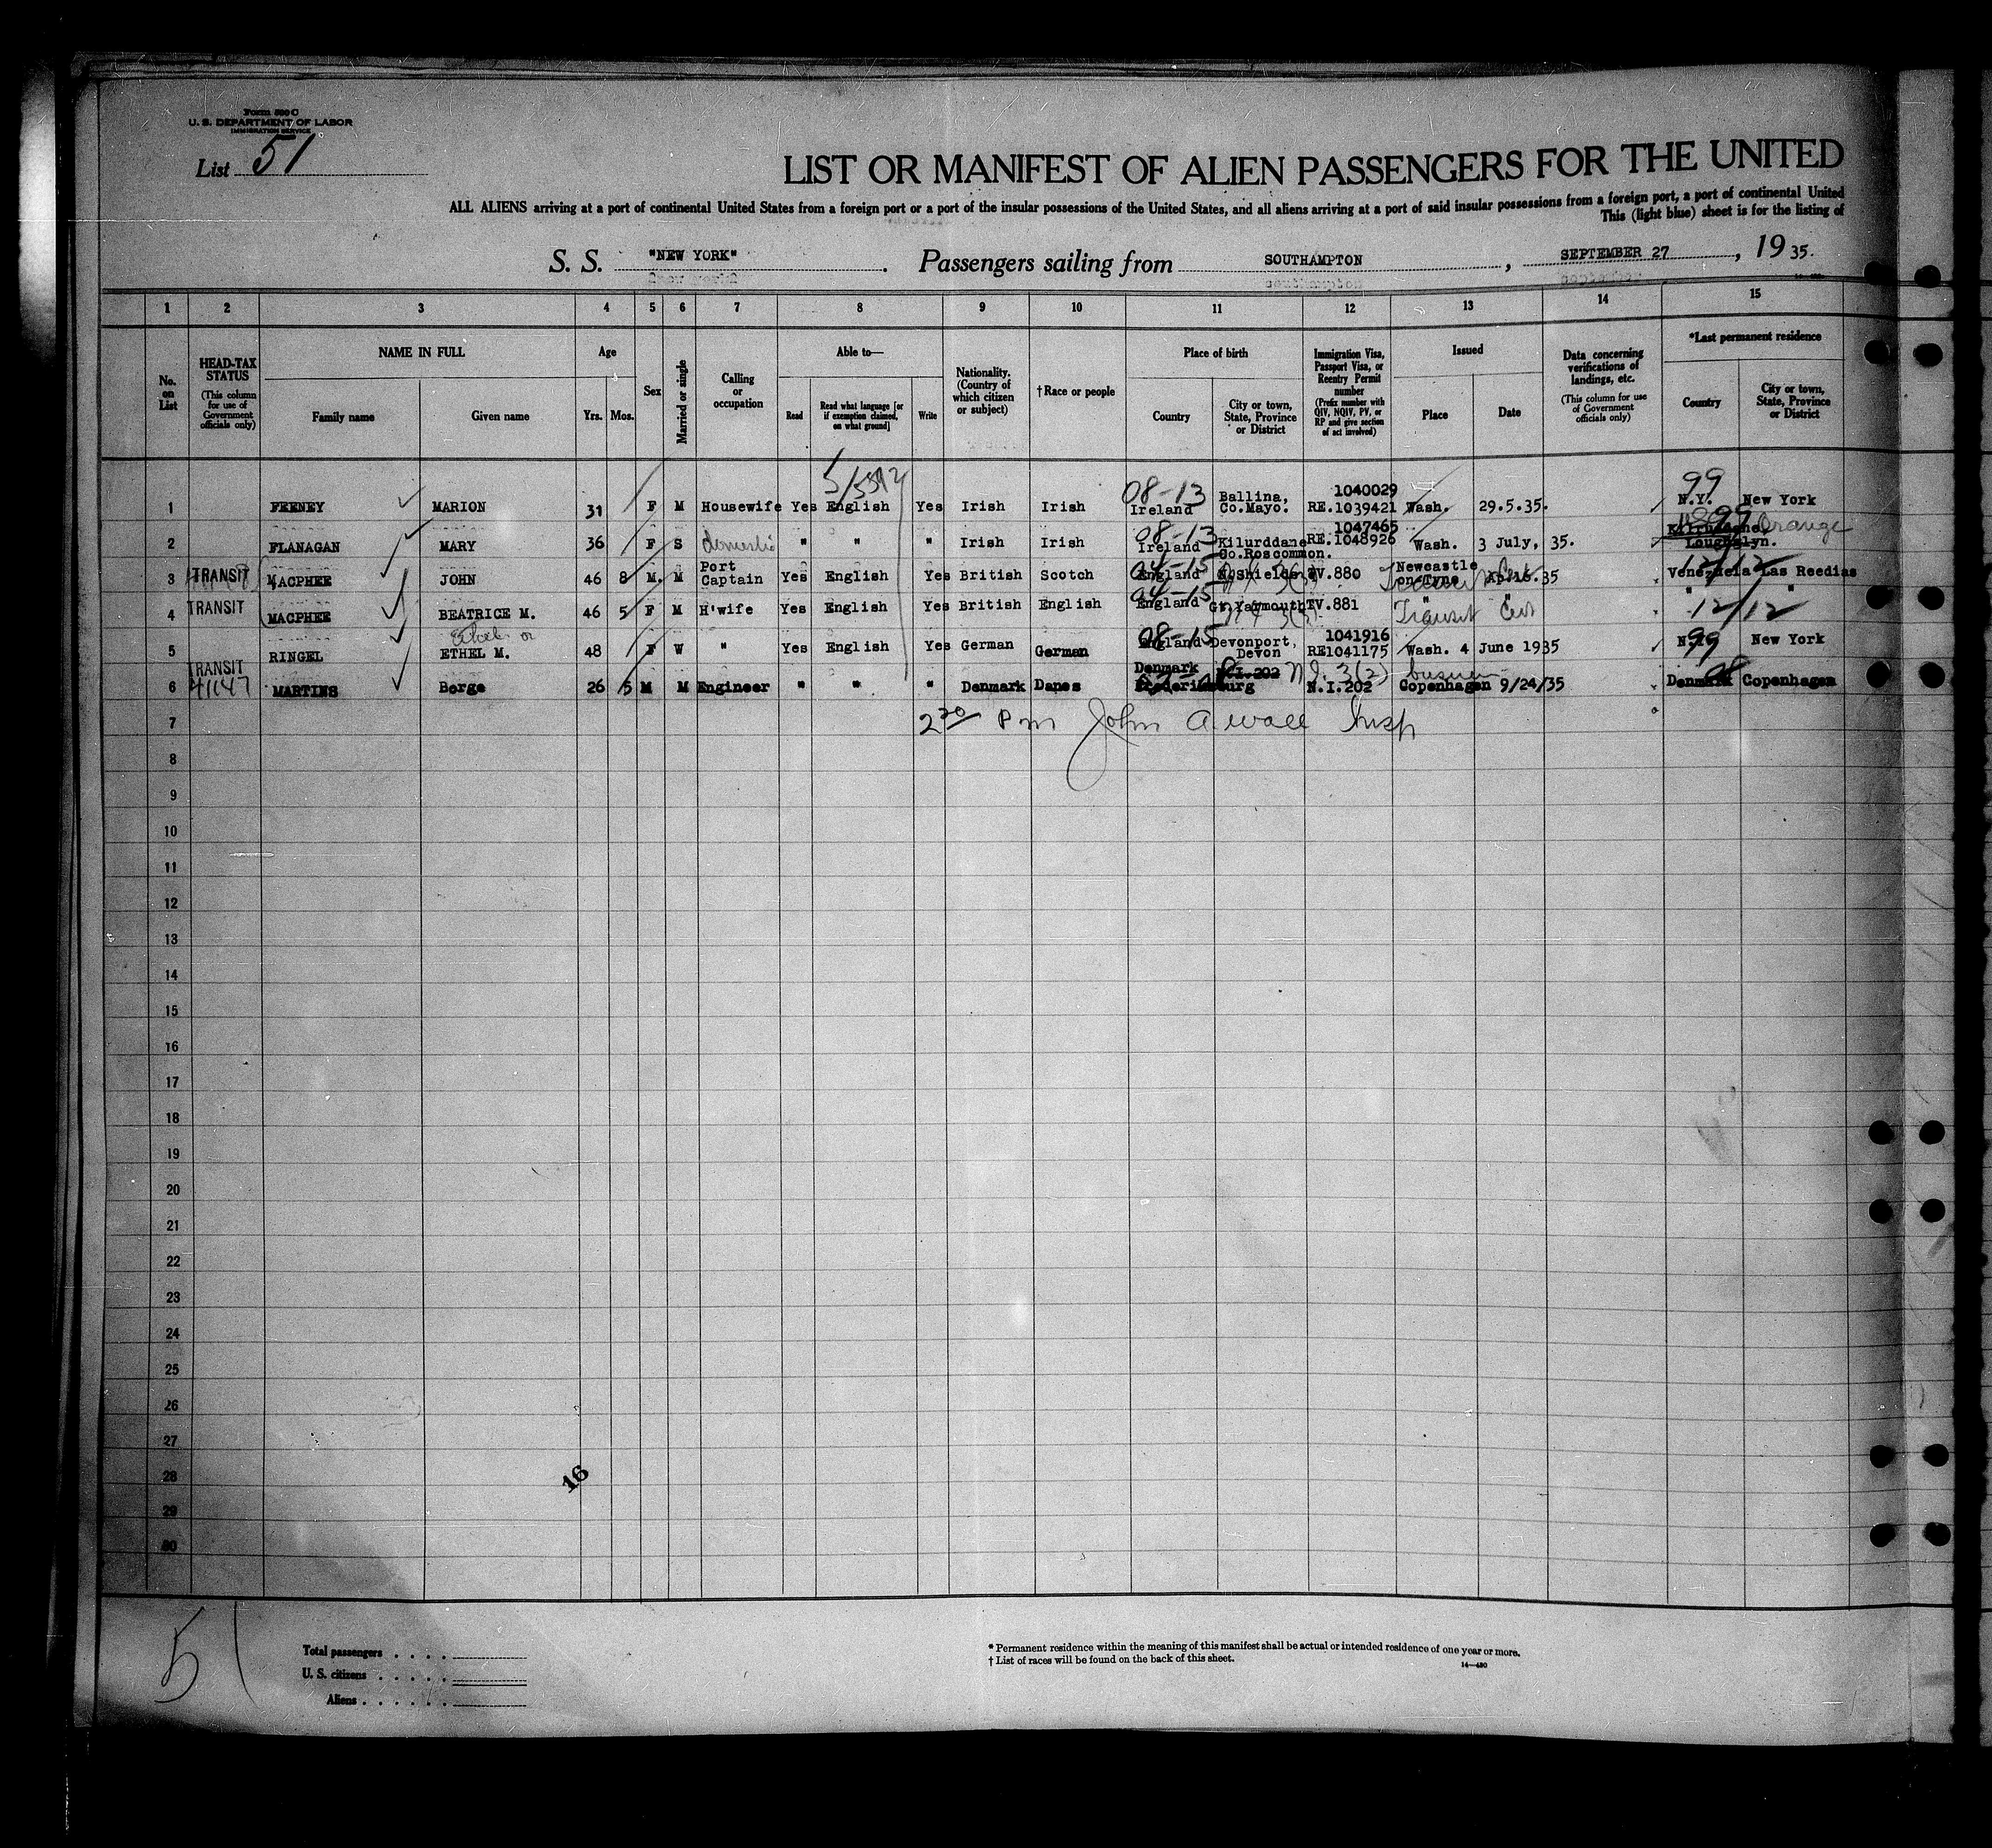 Form 500 C
U. S. DEPARTMENT OF LABOR
IMMIGRATION SERVICE
List 51
LIST OR MANIFEST OF ALIEN PASSENGERS FOR THE UNITED
ALL ALIENS arriving at a port of continental United States from a foreign port or a port of the insular possessions of the United States, and all aliens arriving at a port of said insular possessions from a foreign port, a port of continental United
This (light blue) sheet is for the listing of
S. S. "NEW YORK" . Passengers sailing from SOUTHAMPTON , SEPTEMBER 27 , 19 35.
1 2 3 4 5 6 7 8 9 10 11 12 13 14 15
No. on List
HEAD-TAX STATUS (This column for use of Government officials only)
NAME IN FULL
Family name Given name
Age
Yrs. Mos.
Sex
Married or single
Calling or occupation
Able to—
Read Read what language [or if exemption claimed, on what ground] Write
Nationality. (Country of which citizen or subject)
†Race or people
Place of birth
Country City or town, State, Province or District
Immigration Visa, Passport Visa, or Reentry Permit number (Prefix number with QIV, NQIV, PV, or RP and give section of act involved)
Issued
Place Date
Data concerning verifications of landings, etc. (This column for use of Government officials only)
*Last permanent residence
Country City or town, State, Province or District
1 FEENEY MARION 31 F M Housewife Yes English Yes Irish Irish 08-13 Ireland Ballina, Co.Mayo. 1040029 RE.1039421 Wash. 29.5.35. 99 N.Y. New York
2 FLANAGAN MARY 36 F S domestic " " " Irish Irish 08-13 Ireland Kilurddane Co.Roscommon. 1047465 RE.1048926 Wash. 3 July, 35. 99 Loughglyn. Orange
3 TRANSIT MACPHEE JOHN 46 8 M. M Port Captain Yes English Yes British Scotch 04-15 England N.Shields TV.880 Newcastle on Tyne 35 Venezuela Las Reedias
4 TRANSIT MACPHEE BEATRICE M. 46 5 F M H'wife Yes English Yes British English 04-15 England Gt.Yarmouth TV.881 " Transit Cert " " 12/12
5 RINGEL Ethel or ETHEL M. 48 F W " Yes English Yes German German 08-15 England Devonport, Devon 1041916 RE1041175 Wash. 4 June 1935 99 N.Y. New York
6 TRANSIT 41147 MARTINS Borge 26 5 M M Engineer " " " Denmark Danes Denmark N.I.202 N.I. 3(2) business N.I.202 Copenhagen 9/24/35 Denmark Copenhagen
7 2 30 P m John A. Wall Insp
8
9
10
11
12
13
14
15
16
17
18
19
20
21
22
23
24
25
26
27
28
29
30
16
51
Total passengers . . . .
U. S. citizens . . . . .
Aliens . . . . . .
* Permanent residence within the meaning of this manifest shall be actual or intended residence of one year or more.
† List of races will be found on the back of this sheet.
14—430